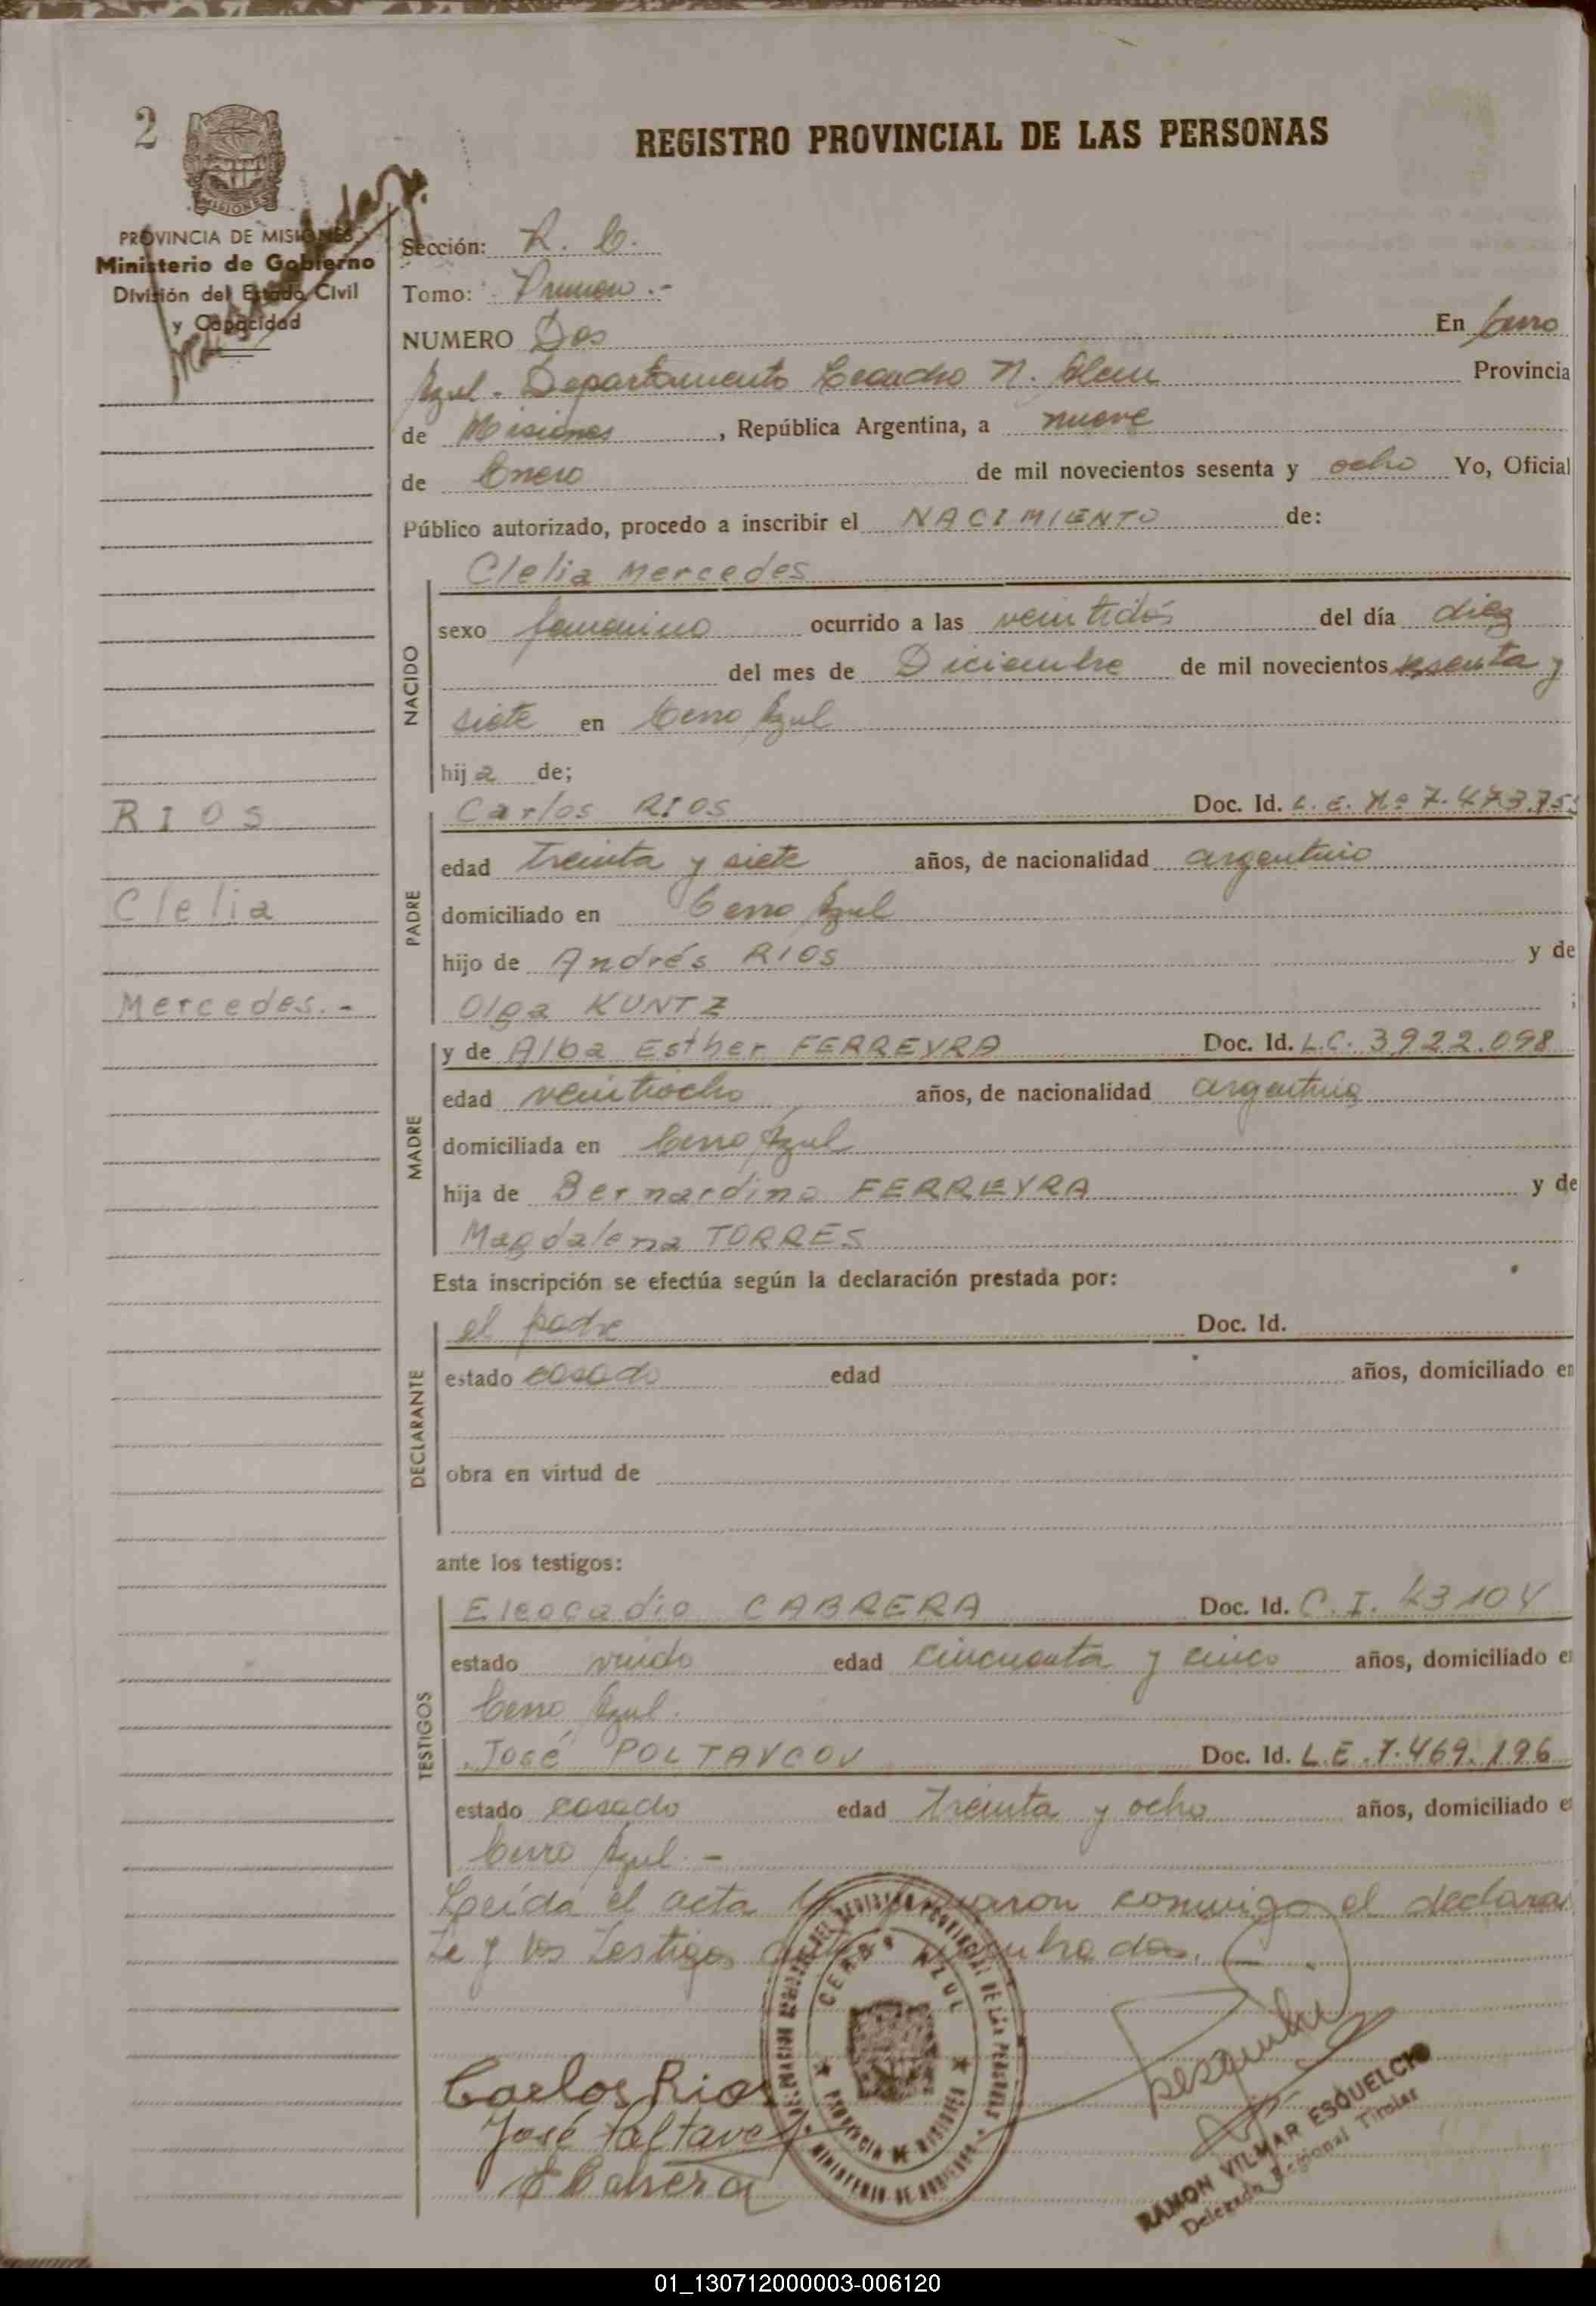 2
REGISTRO PROVINCIAL DE LAS PERSONAS
MISIONES
PROVINCIA DE MISIONES
Ministerio de Gobierno
División del Estado Civil
y Capacidad
Sección:
Tomo:
NUMERO Dos En Cerro
Azul - Departamento Leandro N. Alem Provincia
de Misiones, República Argentina, a nueve
de Enero de mil novecientos sesenta y ocho Yo, Oficial
Público autorizado, procedo a inscribir el NACIMIENTO de:
NACIDO
Clelia Mercedes
sexo femenino ocurrido a las veintidós del día diez
del mes de Diciembre de mil novecientos sesenta y
siete en Cerro Azul
hija de;
RIOS
Clelia
Mercedes.-
PADRE
Carlos RIOS Doc. Id. L. E. Nº 7.473.75
edad treinta y siete años, de nacionalidad argentino
domiciliado en Cerro Azul
hijo de Andrés RIOS y de
Olga KUNTZ ;
MADRE
y de Alba Esther FERREYRA Doc. Id. L.C. 3922.098
edad veintiocho años, de nacionalidad argentina
domiciliada en Cerro Azul
hija de Bernardino FERREYRA y de
Magdalena TORRES
Esta inscripción se efectúa según la declaración prestada por:
DECLARANTE
el padre Doc. Id.
estado casado edad años, domiciliado en
obra en virtud de
ante los testigos:
TESTIGOS
Eleocadio CABRERA Doc. Id. C. I. 43104
estado viudo edad cincuenta y cinco años, domiciliado e
Cerro Azul.
José POLTAVCOV Doc. Id. L.E. 7.469.196
estado casado edad treinta y ocho años, domiciliado e
Cerro Azul. -
Leída el acta la firmaron conmigo el declaran
te y los testigos
DEL REGISTRO PROVINCIAL DE LAS PERSONAS
CERRO AZUL
PROVINCIA DE MISIONES
MINISTERIO DE GOBIERNO
Carlos Rios
José Paltavco
E Cabrera
RAMON VILMAR ESQUELCIO
Delegado Regional Titular
01_130712000003-006120